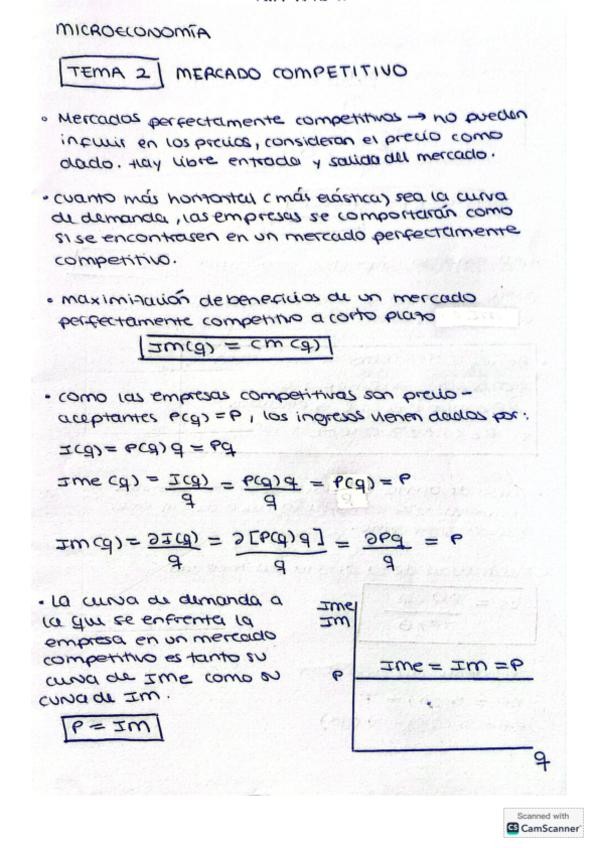 MICROECONOMÍA
TEMA 2 MERCADO COMPETITIVO
• Mercados perfectamente competitivos → no pueden
influir en los precios, consideran el precio como
dado. Hay libre entrada y salida del mercado.
• cuanto más horizontal (más elástica) sea la curva
de demanda, las empresas se comportarán como
si se encontrasen en un mercado perfectamente
competitivo.
• maximización de beneficios de un mercado
perfectamente competitivo a corto plazo
Im(q) = cm(q)
• como las empresas competitivas son precio-
aceptantes P(q) = P, los ingresos vienen dados por:
I(q) = P(q) q = Pq
Ime (q) = I(q)/q = P(q) q/q = P(q) = P
Im(q) = ∂I(q)/q = ∂[P(q) q]/q = ∂Pq/q = P
• La curva de demanda a
la que se enfrenta la
empresa en un mercado
competitivo es tanto su
curva de Ime como su
curva de Im.
P = Im
Ime
Im
P
Ime = Im = P
q
Scanned with
CS CamScanner